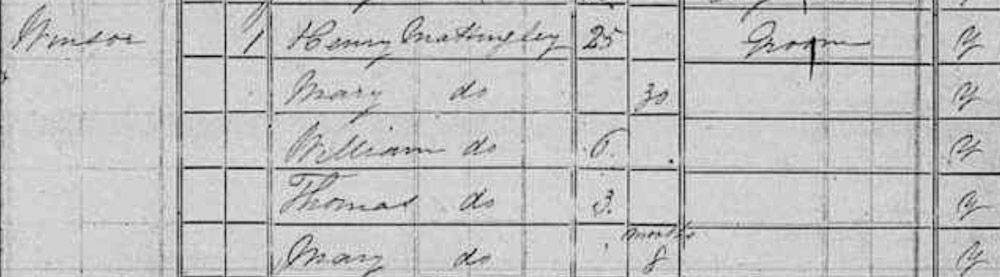 Winsor 1 Henry Mattingley 25 Groom y
Mary do 30 y
William do 6 y
Thomas do 3 y
months
Mary do 8 y